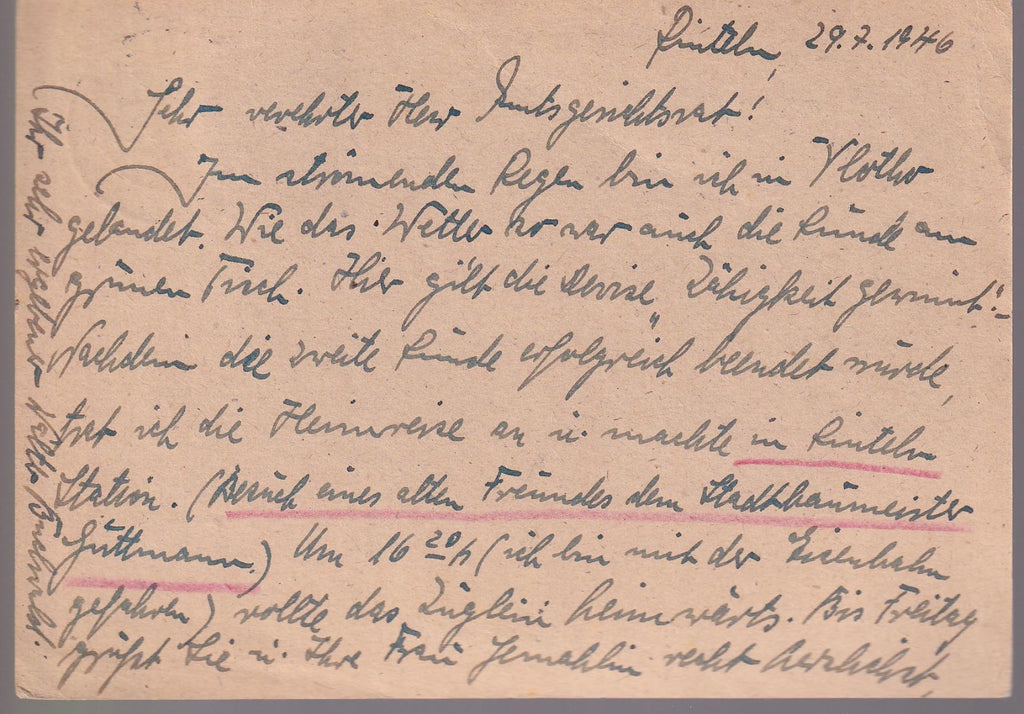 Rinteln, 29.7.1946
Sehr verehrter Herr Amtsgerichtsrat!
Im strömenden Regen bin ich in Vlotho
gelandet. Wie das Wetter so war auch die Runde am
grünen Tisch. Hier gilt die Devise „Zähigkeit gewinnt“.-
Nachdem die zweite Runde erfolgreich beendet wurde,
trat ich die Heimreise an u. machte in Rinteln
Station. (Besuch eines alten Freundes dem Stadtbaumeister
Güttmann.) Um 16 20 h (ich bin mit der Eisenbahn
gefahren) rollte das Züglein heimwärts. Bis Freitag
grüßt Sie u. Ihre Frau Gemahlin recht herzlichst,
Ihr sehr ergebener